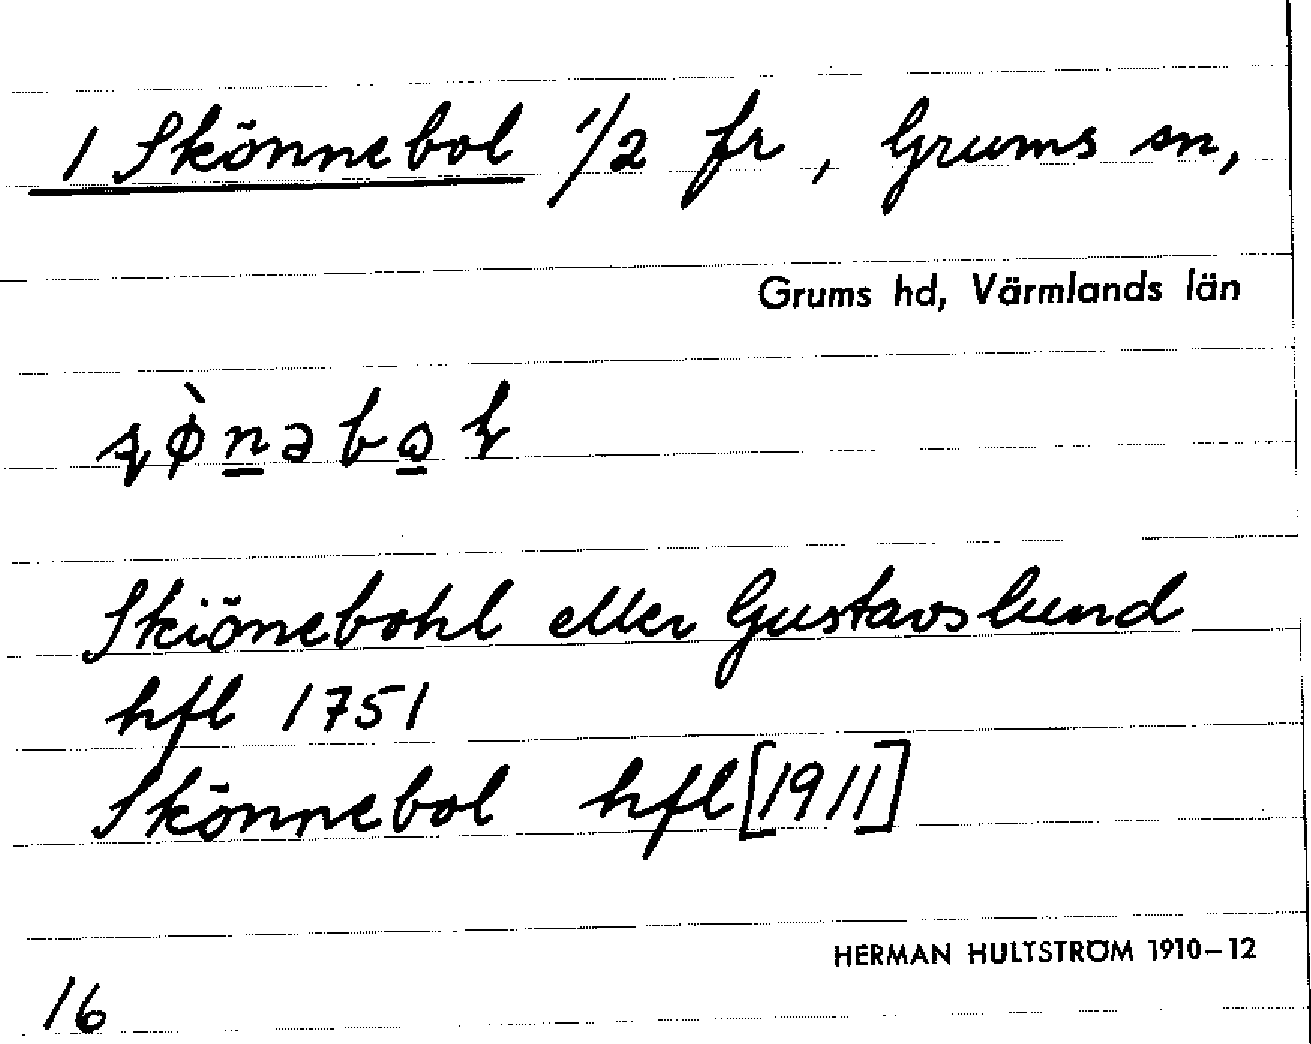 1 Skönnebol 1/2 fr, Grums sn,
Grums hd, Värmlands län
Skiönebohl eller Gustavslund
hfl 1751
Skönnebol hfl [1911]
HERMAN HULTSTRÖM 1910–12
16